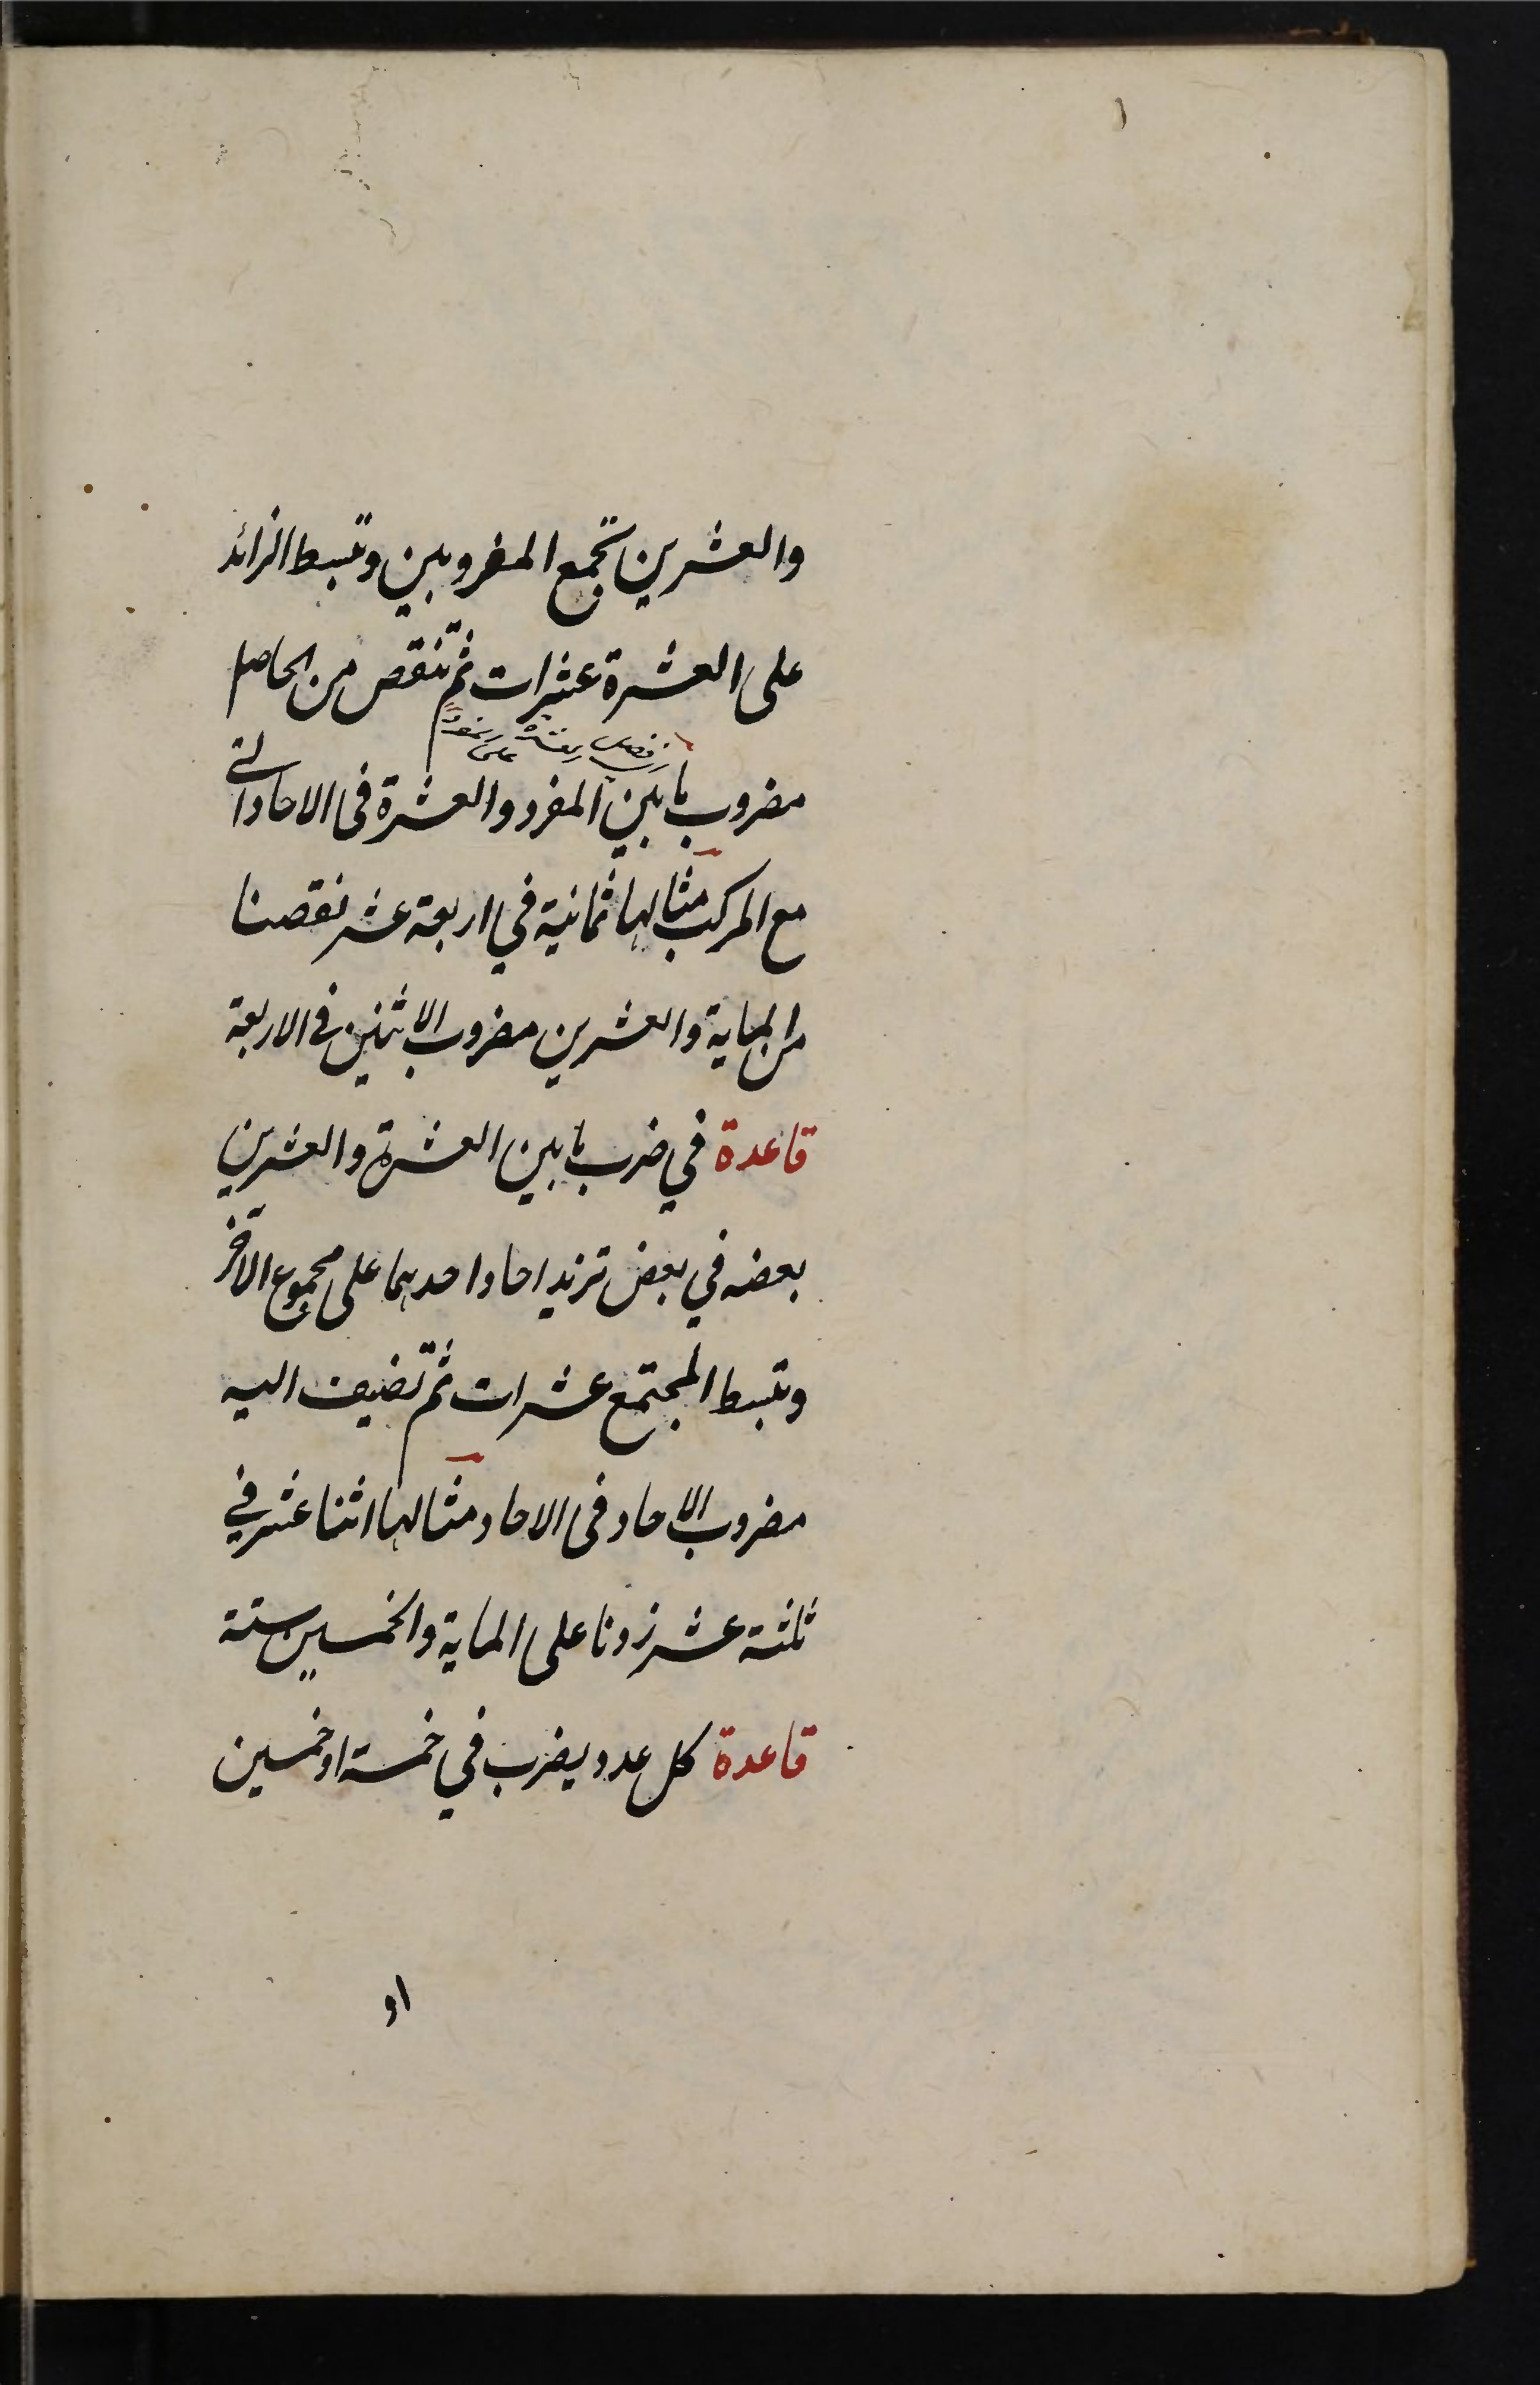 والعشرين تجمع المضروبين وتبسط الزائد
على العشرة عشرات ثم تنقص من الحاصل
فضل العشرة على المفرد
مضروب ما بين المفرد والعشرة فى الاحاد التى
مع المركب مثالها ثمانية في اربعة عشر نقصنا
من الماية والعشرين مضروب الاثنين فى الاربعة
قاعدة في ضرب ما بين العشرة والعشرين
بعضه في بعض تزيد احاد احدهما على مجموع الاخر
وتبسط المجتمع عشرات ثم تضيف اليه
مضروب الاحاد فى الاحاد مثالها اثنا عشر في
ثلثة عشر زدنا على الماية والخمسين ستة
قاعدة كل عدد يضرب في خمسة او خمسين
او